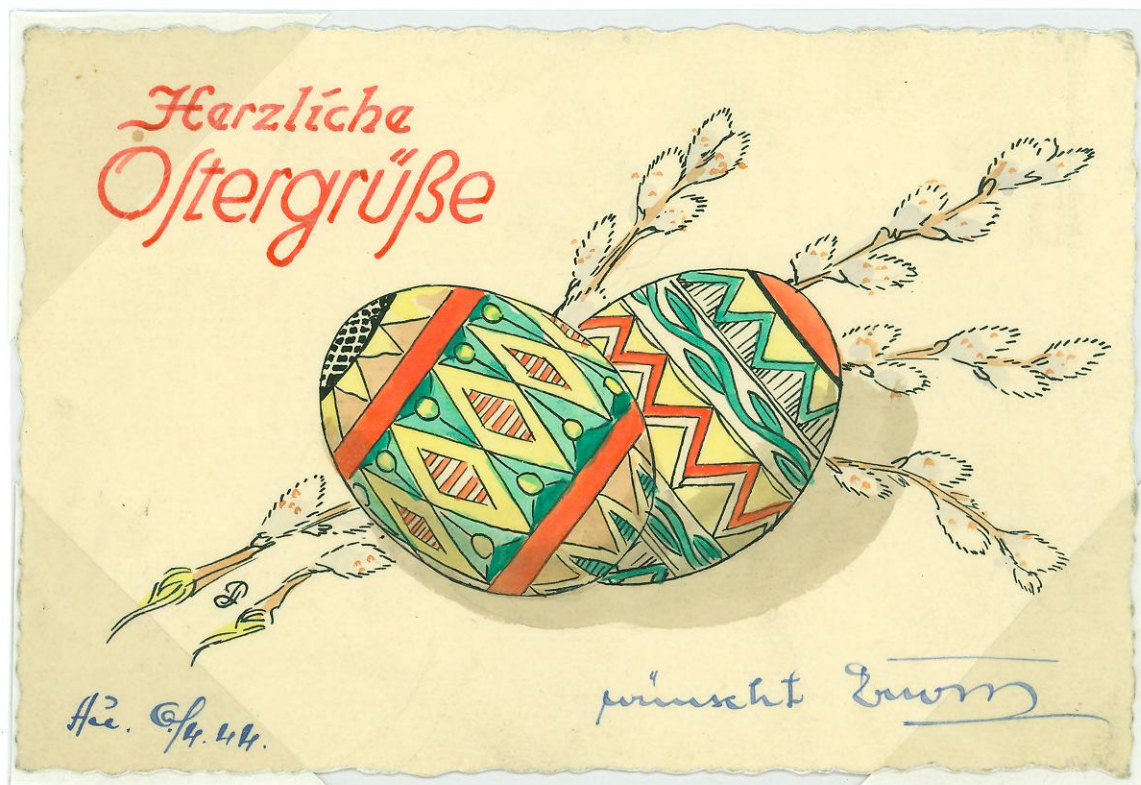 Herzliche
Oſtergrüße
6/4.44.
wünscht